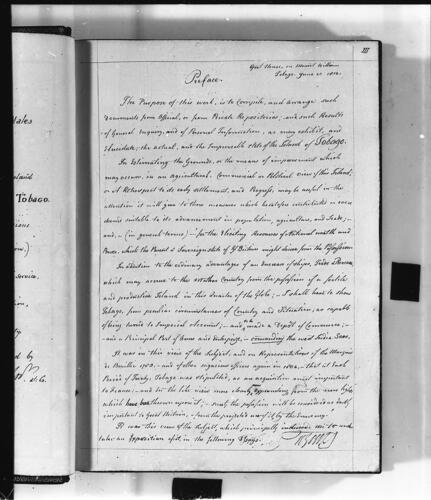 III
Govt House, on Mount William
Tobago June
Preface.
The Purpose of this work, is to Compile, and arrange such
documents from Official, or from Private Repositories; and such Results
of General Enquiry, and of Personal Information, as may exhibit, and
Elucidate; the actual, and the Improvable state of the Island of Tobago.
In Estimating the Grounds, or the means of improvement which
may occur, in an agricultural, Commercial or Political view of this Island;
or A Retrospect to its early settlement, and Progress, may be useful in the
attention it will give to those measures which heretofore contributed or were
deemed suitable to its advancement in population, agriculture, and Trade;—
and,—(in general terms)—for the Resources of National wealth and
Power, which the Parent & Sovereign state of Gt Britain might derive from the Possession
In addition to the ordinary advantages of an increase of ships, Trade & Revenue
which may accrue to the Mother Country from the possession of a fertile
and productive Island in this Quarter of the Globe;—I shall have to show
Tobago, from peculiar circumstances of Country and Situation, as capable
of being turned to Imperial account;—and, made a Depôt of Commerce;—
and a Principal Port of Arms and Enterprize,—commanding the west India Seas.
It was in this view of the subject, and on Representations of the Marquis
de Bouillé 1783,—and of other sagacious officers again in 1802,—that at each
Period of Treaty, Tobago was stipulated, as an acquisition most important
to France;—and in the like view more clearly appearing from the new lights
which have been thrown upon it;—surely the possession will be considered as doubly
important to Great Britain,—from the projected use of it by the enemy.
It was this view of the subject, which principally induced me to under-
take an Exposition of it, in the following Essay.
ales
Tobago.
service.
d by
&c.